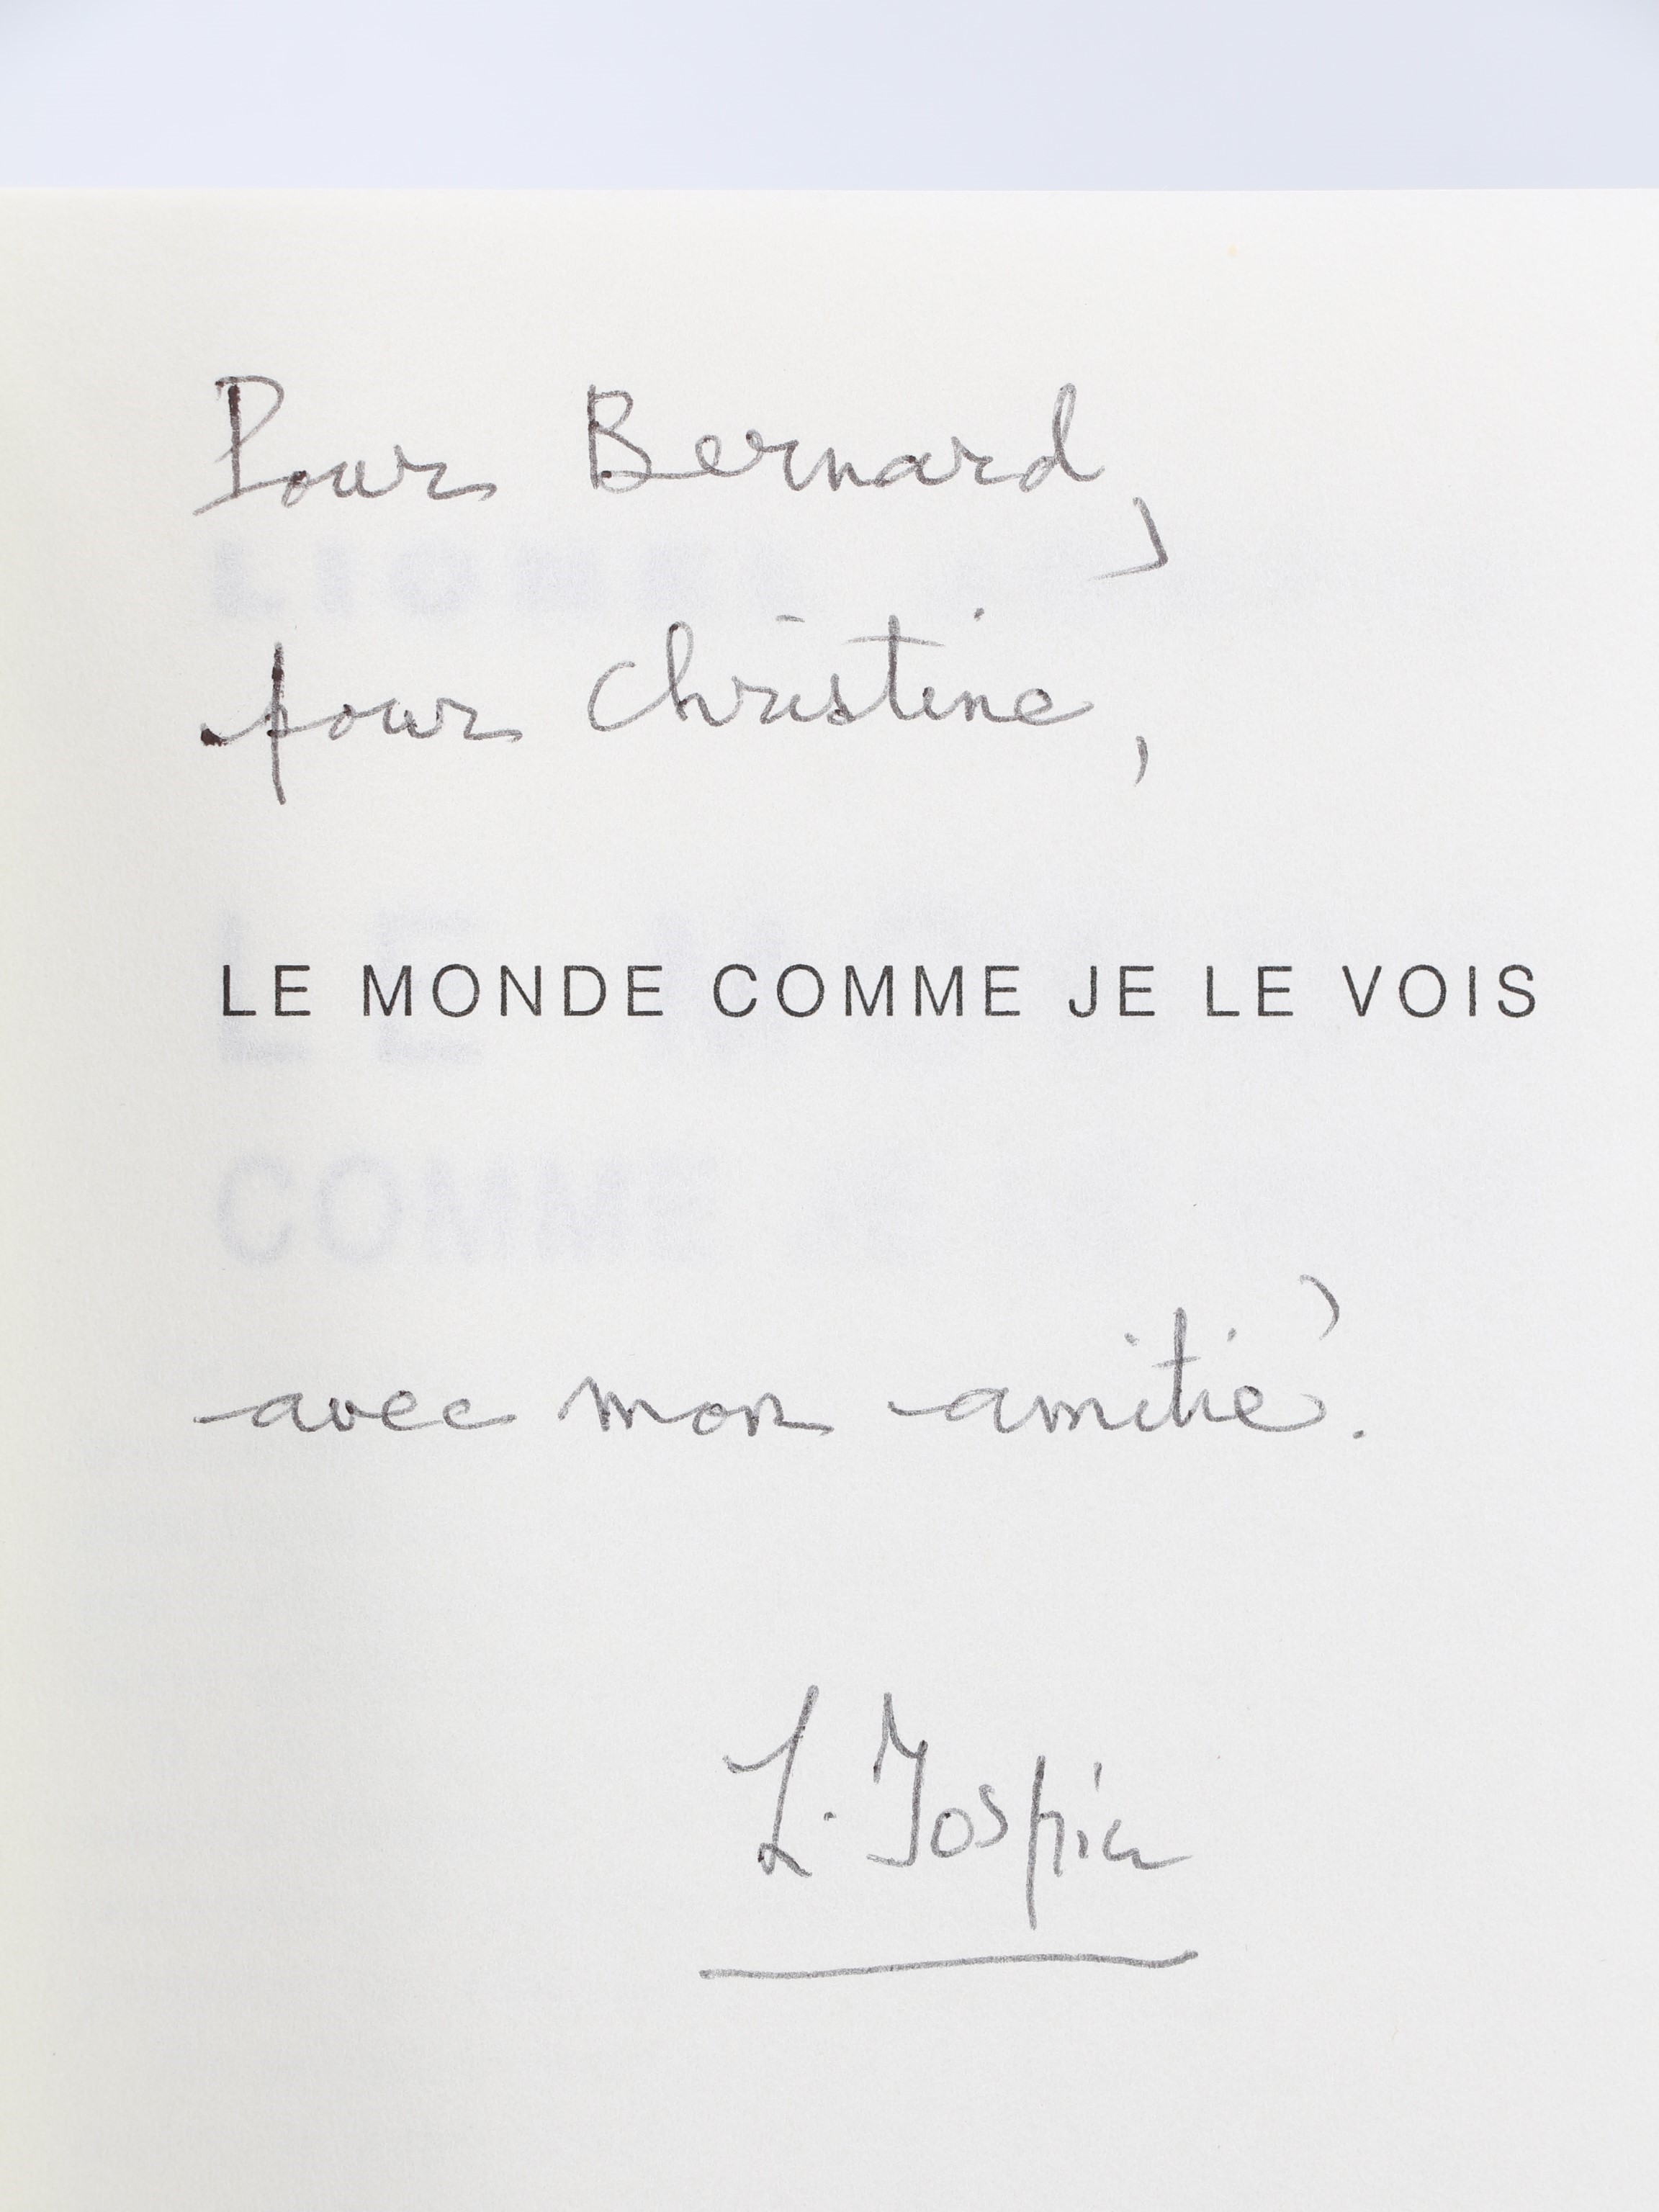 Pour Bernard,
pour Christine,
LE MONDE COMME JE LE VOIS
avec mon amitié.
L. Jospin